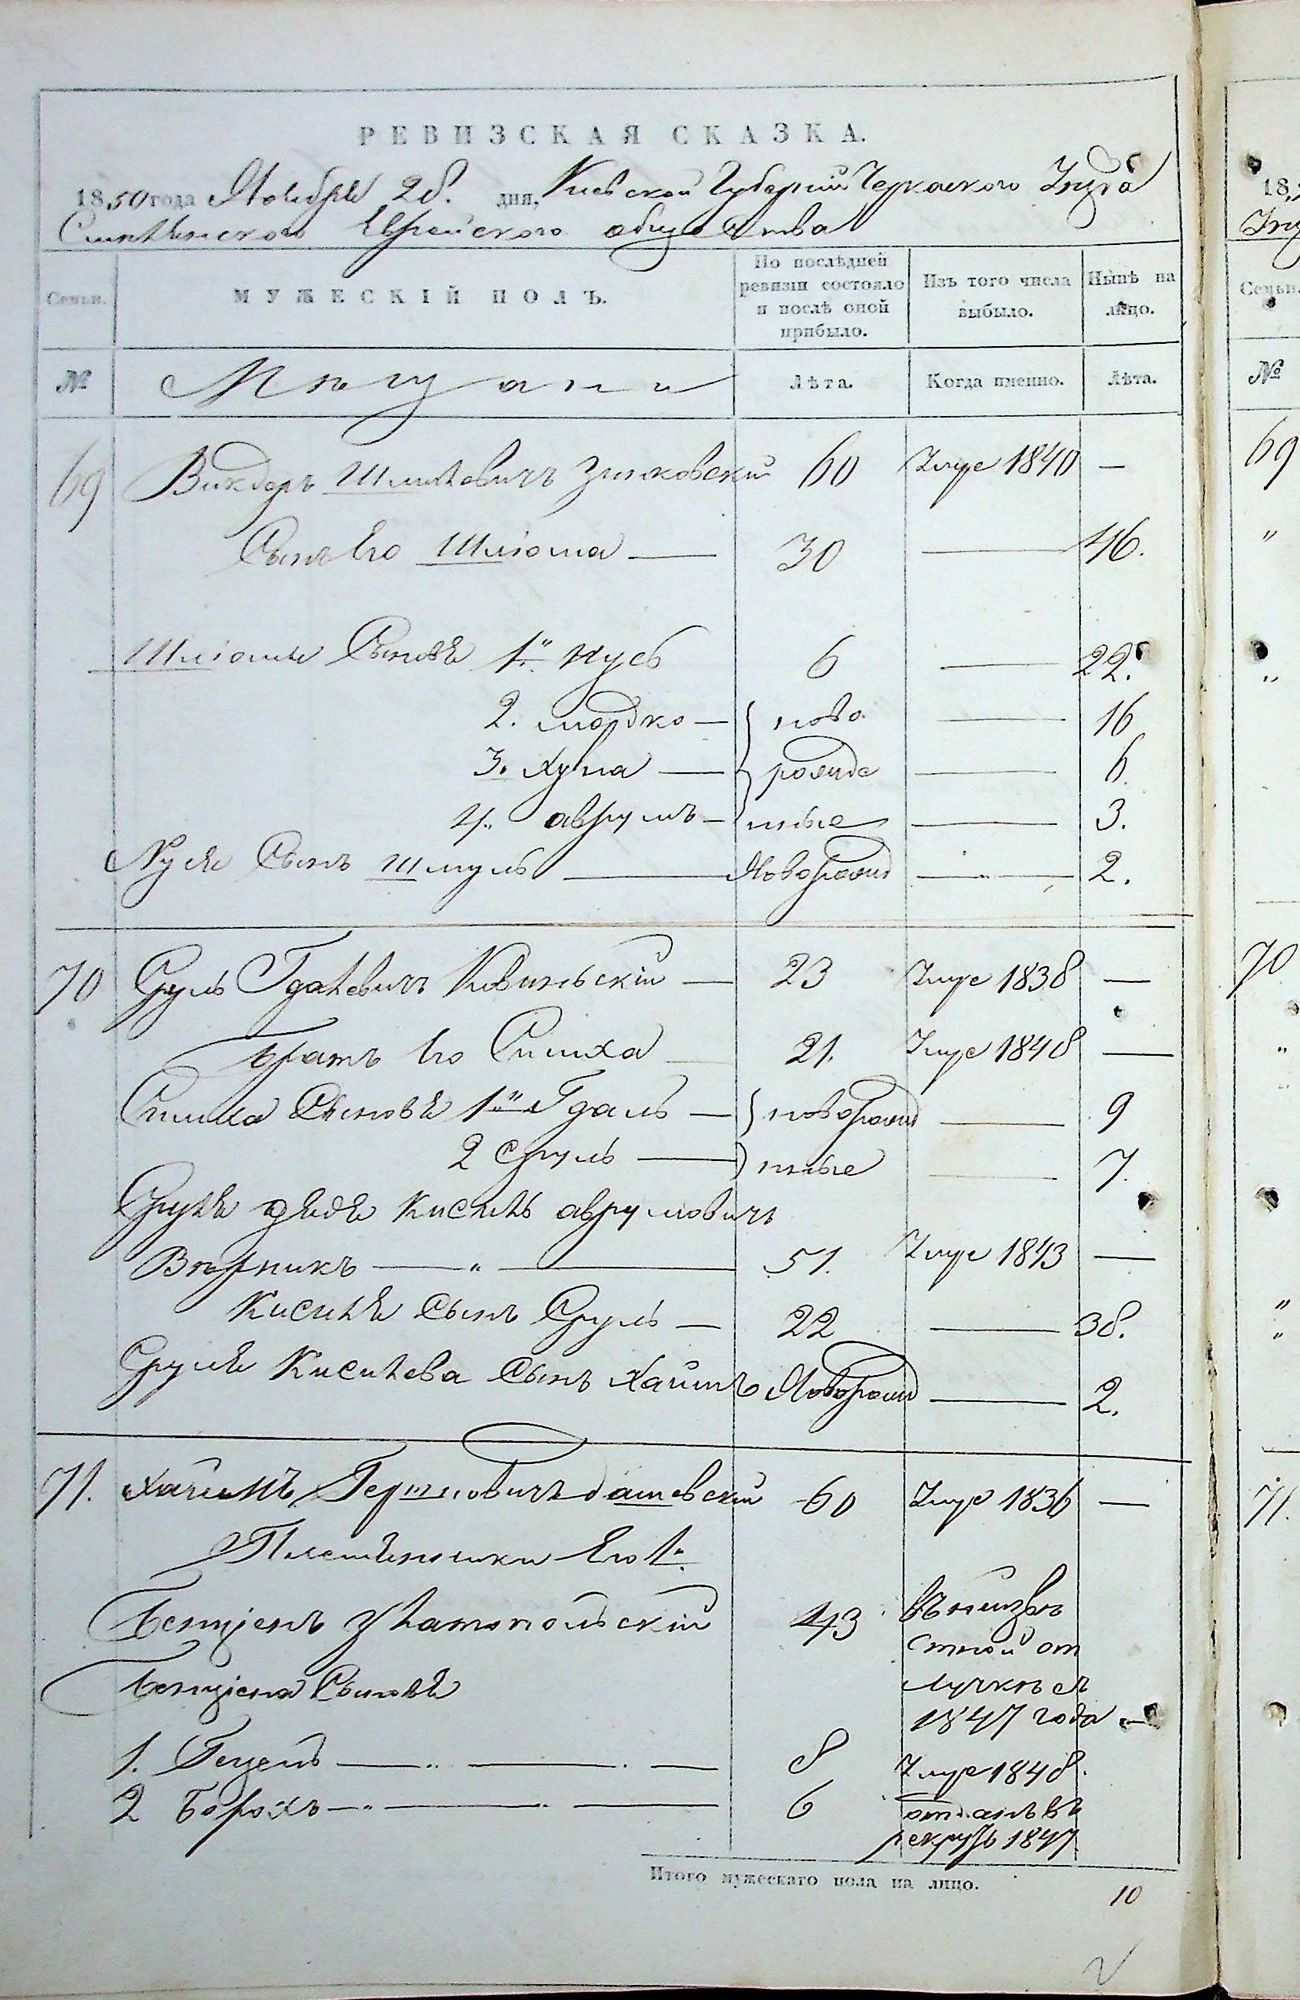 РЕВИЗСКАЯ СКАЗКА.
1850 года Ноября 28. дня, Киевской Губернии Черкаского Уезда
Смелянского Еврейского общества
Семьи. МУЖЕСКІЙ ПОЛЪ. По послѣдней ревизіи состояло и послѣ оной прибыло. Изъ того числа выбыло. Нынѣ на лицо.
№ Мещани Лѣта. Когда именно. Лѣта.
69 Викдоръ Шмилевичъ Зинковский 60 Умре 1840 —
Сынъ Его Шліома — 30 — 46.
Шліомы Сыновя 1й Нусь 6 — 22.
2. мордко — ново 16
3. Хуна — рожде 6
4. аврумъ — нные 3.
Нуся Сынъ Шмуль — Яоворожд — 2.
70 Сруль Гдалевичъ Ковинскій — 23 Умре 1838 —
Братъ Его Симха 21. Умре 1848 —
Симха Сыновя 1й Гдаль — новорожд — 9
2 Сруль — нные — 7.
Сруля дядя Кисиль аврумовичъ
Верникъ — 51. Умре 1843 —
Кисиля Сынъ Сруль — 22 — 38.
Сруля Кисилева Сынъ Хаимъ Новорожд — 2.
71. Хаимъ Гершковичъ дашевский 60 Умре 1836 —
Племенники Его 1й
Бенціенъ Златопольский 43 въ неизве
стной от
лучке съ
1847 года —
Бенціена Сыновя
1. Гецель — 8 Умре 1848.
2 Борохъ — 6 отданъ въ
рекруты 1847
Итого мужескаго пола на лицо. 10
18
№
69
70
71.